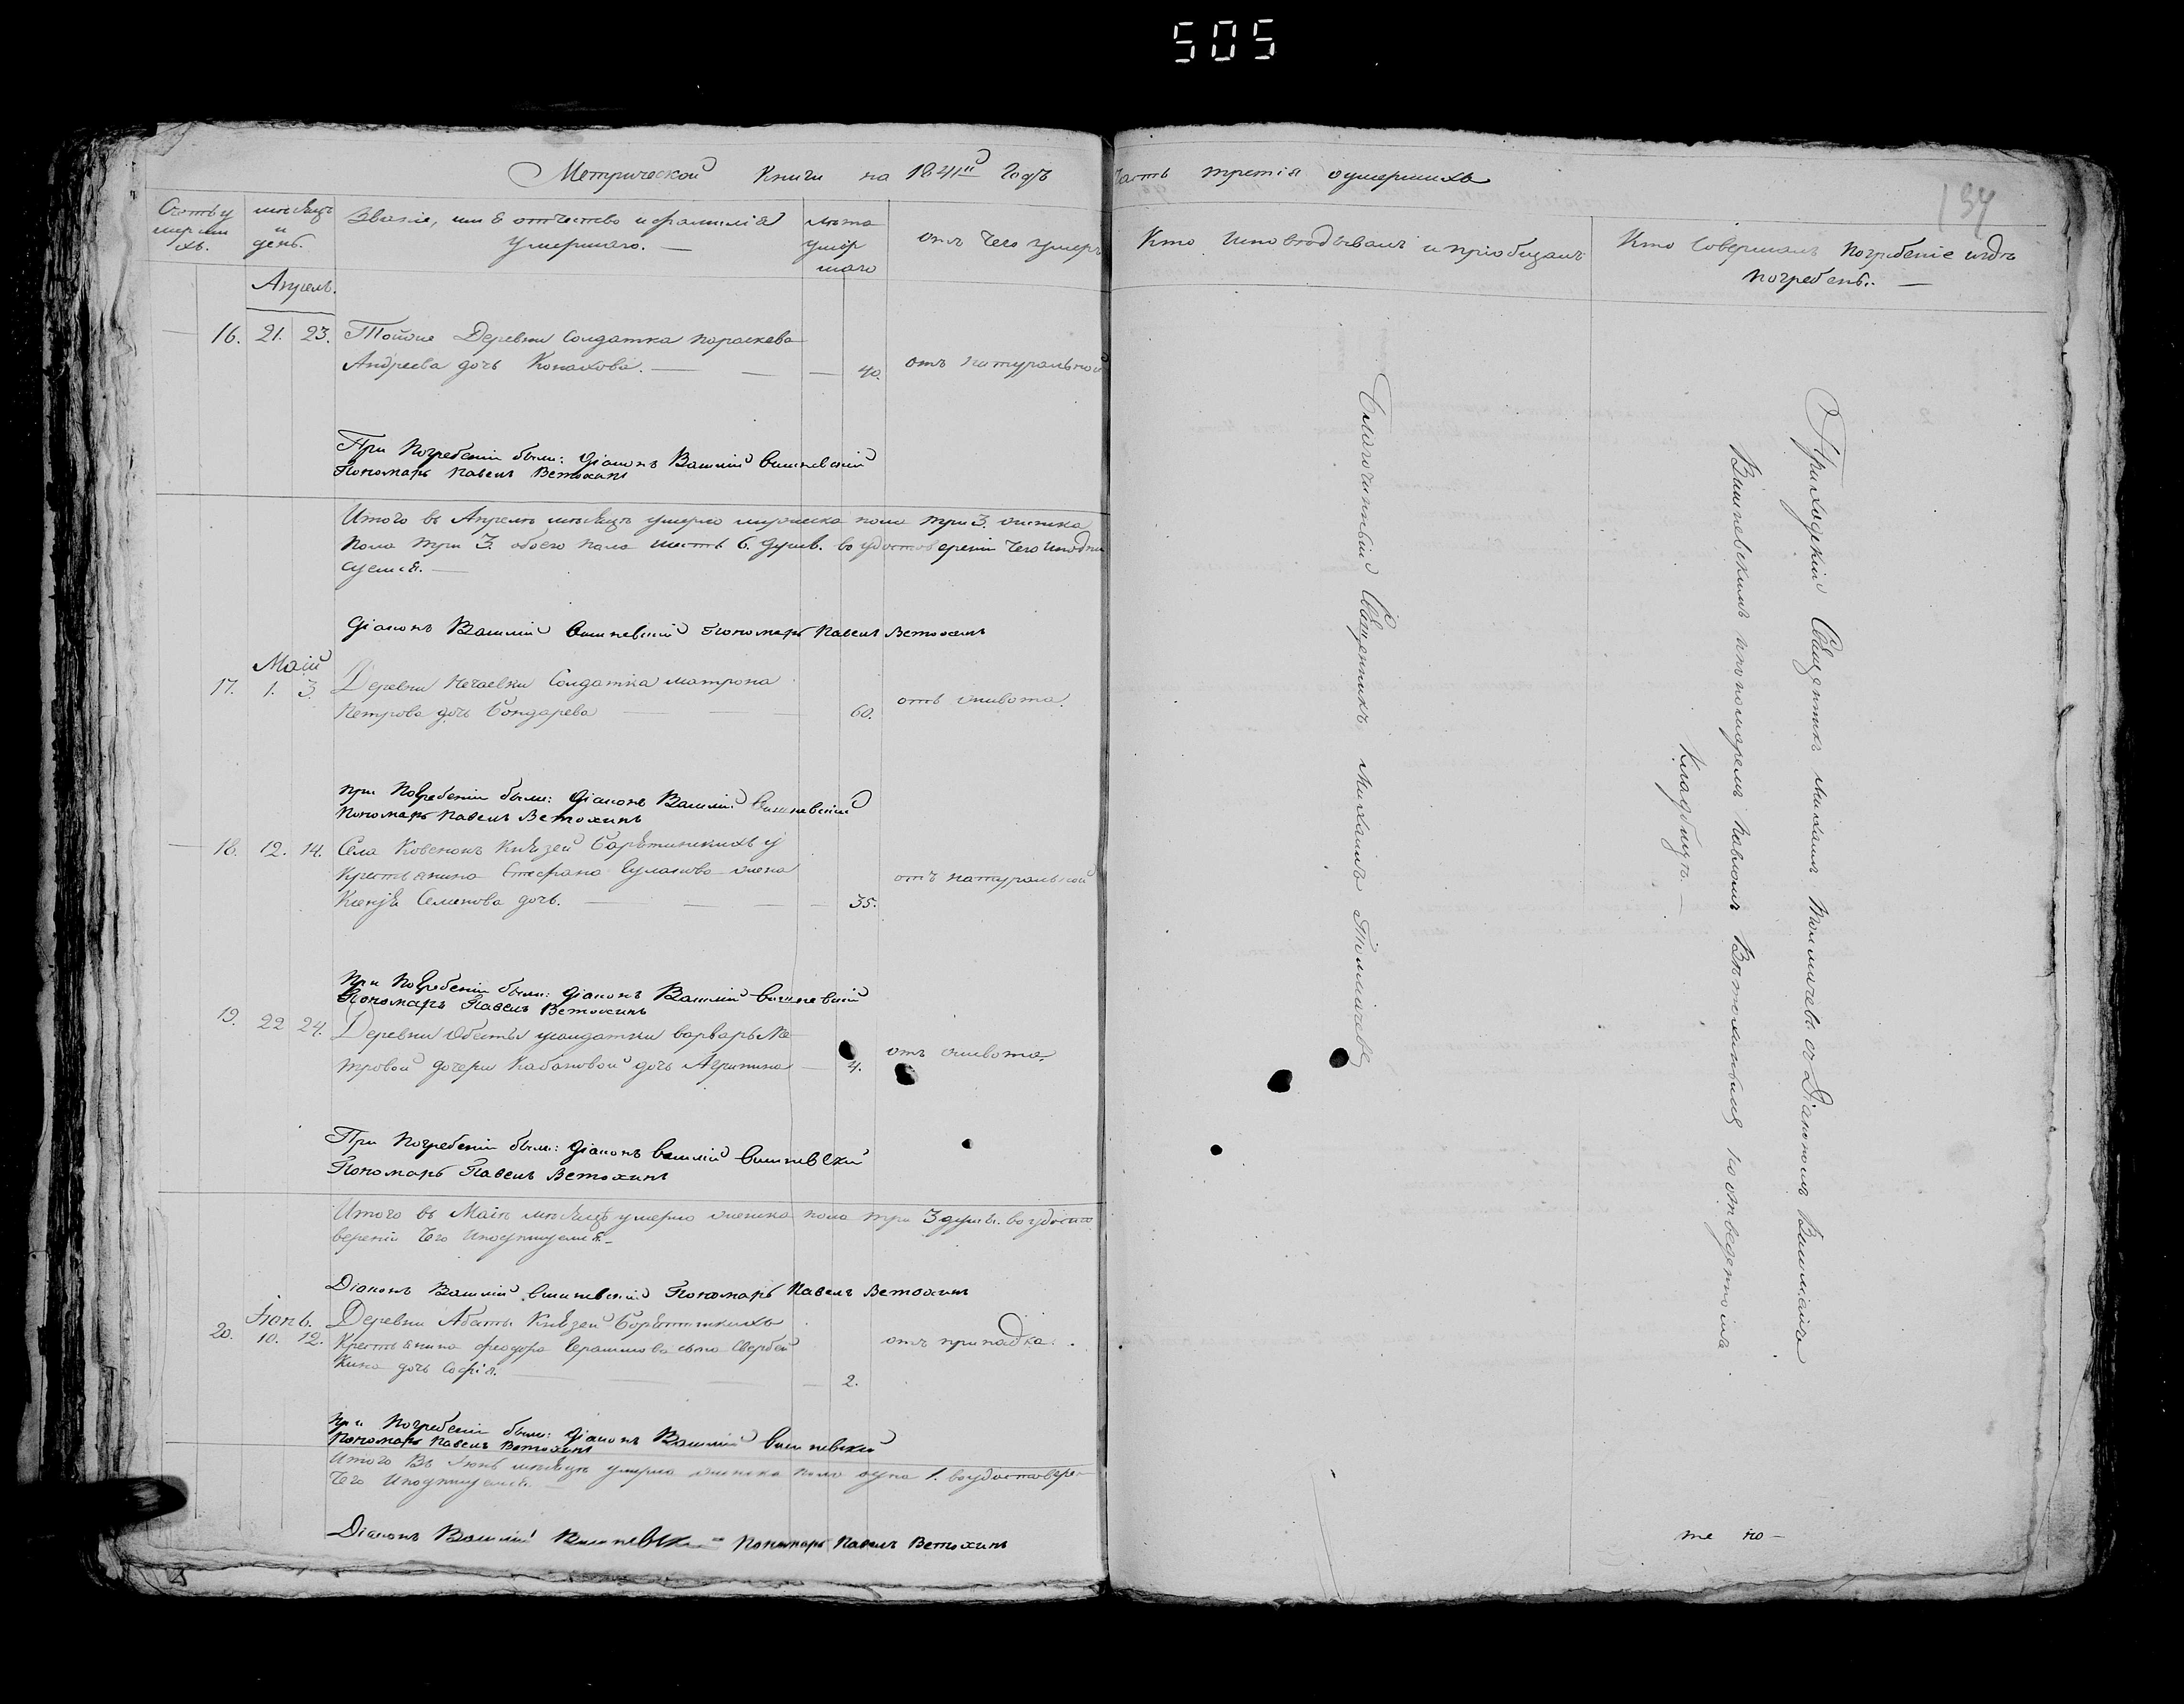 505
Метрической Книги на 1841й Годъ часть третія оумершихъ
134
Счетъ у
мерши
хъ.
мѣсяцъ
и
день.
Званіе, имя отчество и фамилія
умершаго. —
лѣта
умер
шаго
отъ чего умеръ
Кто исповѣдывалъ и пріобщалъ
Кто совершалъ погребеніе и гдѣ
погребенъ. —
Апрель.
16. 21. 23. Тойже Деревни Солдатка параскева
Андреева дочь Конахова. — 40. отъ натуральной
При Погребеніи были: Діаконъ Василій Вишневскій
Пономарь Павелъ Ветохинъ
Итого въ Апрелѣ мѣсяцѣ умерло мужеска пола три 3. женска
пола три 3. обоего пола шесть 6. душъ. во удостовереніи чего и подпи
суемся. —
Діаконъ Василій Вишневскій Пономарь Павелъ Ветохинъ
Маій
17. 1. 3. Деревни Нечаевки Солдатка матрона
Петрова дочь Бондарева — 60. отъ живота.
при Погребеніи были: Діаконъ Василій Вишневскій
Пономарь Павелъ Ветохинъ
18. 12. 14. Села Ковенокъ Князей Барятинскихъ у
крестьянина Стефана жена
Ксенія Семенова дочь. — 35. отъ натуральной
При Погребеніи были: Діаконъ Василій Вишневскій
Пономарь Павелъ Ветохинъ
19. 22 24. Деревни усолдатки варвары Пе
тровой дочери Кабановой дочь Агрипина — 4. отъ живота.
При Погребеніи были: Діаконъ Василій Вишневскій
Пономарь Павелъ Ветохинъ
Итого въ Маіи мѣсяцѣ умерло женска пола три 3 душъ. во удосто
вереніи чего и подпишуемся. —
Діаконъ Василій Вишневскій Пономарь Павелъ Ветохинъ
Іюнь.
20. 10. 12. Деревни Князей Борятинскихъ
Крестьянина феодора Герасимова сына
дочь Софія. — 2. отъ припадка.
при Погребеніи были: Діаконъ Василій Вишневскій
Пономарь Павелъ Ветохинъ
Итого Въ Іюнѣ мѣсяцѣ умерла женска пола одна 1. во удостовере
чего и подпишуемся
Діаконъ Василій Вишневскій Пономарь Павелъ Ветохинъ
Благочинный Священникъ Михаилъ
Приходскій Священникъ Михаилъ съ Діакономъ Василіемъ
Вишневскимъ и пономаремъ Павломъ Ветохинымъ на отведенномъ
Кладбищѣ. —
те но —